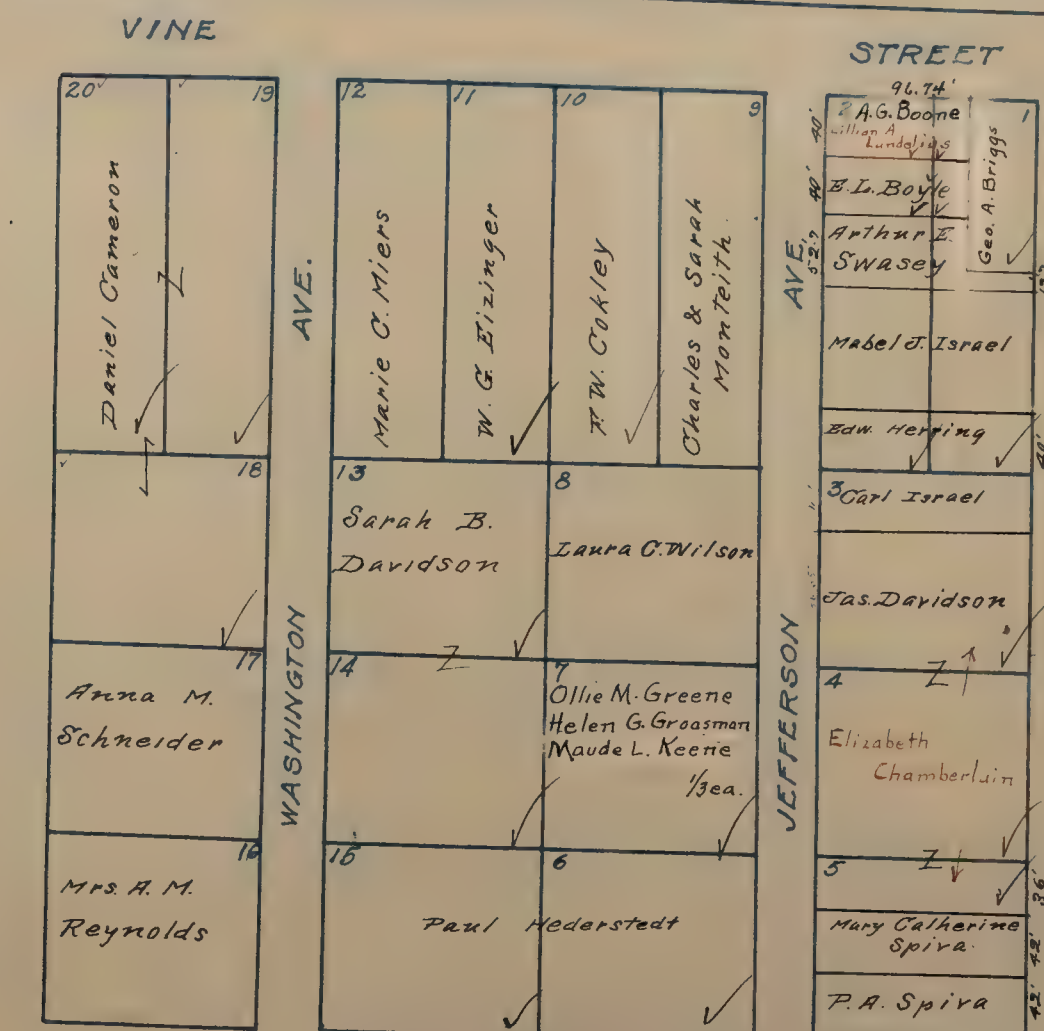 VINE
STREET
20
19
Daniel Cameron
Z
18
17
Anna M.
Schneider
16
Mrs. A. M.
Reynolds
WASHINGTON
AVE.
12
11
10
9
Marie C. Miers
W. G. Eizinger
F. W. Cokley
Charles & Sarah
Monteith
13
Sarah B.
Davidson
8
Laura C. Wilson
14
Z
7
Ollie M. Greene
Helen G. Groasman
Maude L. Keene
1/3 ea.
15
6
Paul Hederstedt
JEFFERSON
AVE.
96.74'
2
A.G. Boone
1
40'
Lillian A
Lundelius
40'
E.L. Boyle
Geo. A. Briggs
52.7
Arthur E.
Swasey
Mabel J. Israel
Edw. Herring
40'
3
Carl Israel
Jas. Davidson
Z
4
Elizabeth
Chamberlain
Z
5
36'
Mary Catherine
Spiva
42'
P.A. Spiva
42'